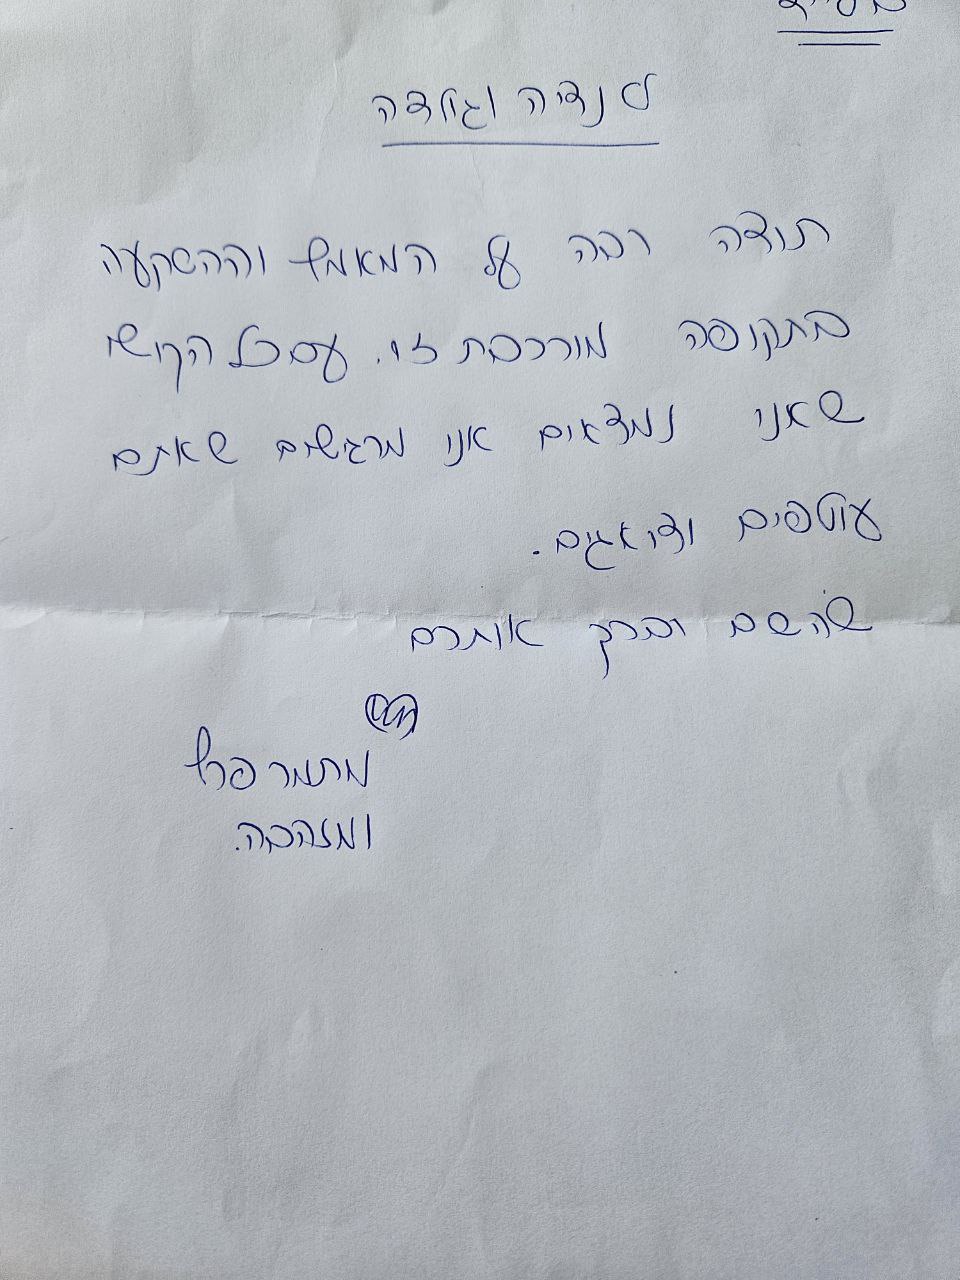 בס״ד
לנדיה וגולדה
תודה רבה על המאמץ וההשקעה
בתקופה מורכבת זו. עם כל הקושי
שאני נמצאים אני מרגישים שאתם
עוטפים ודואגים.
שהשם יברך אותכם
מתמר פרץ
ומזהבה.